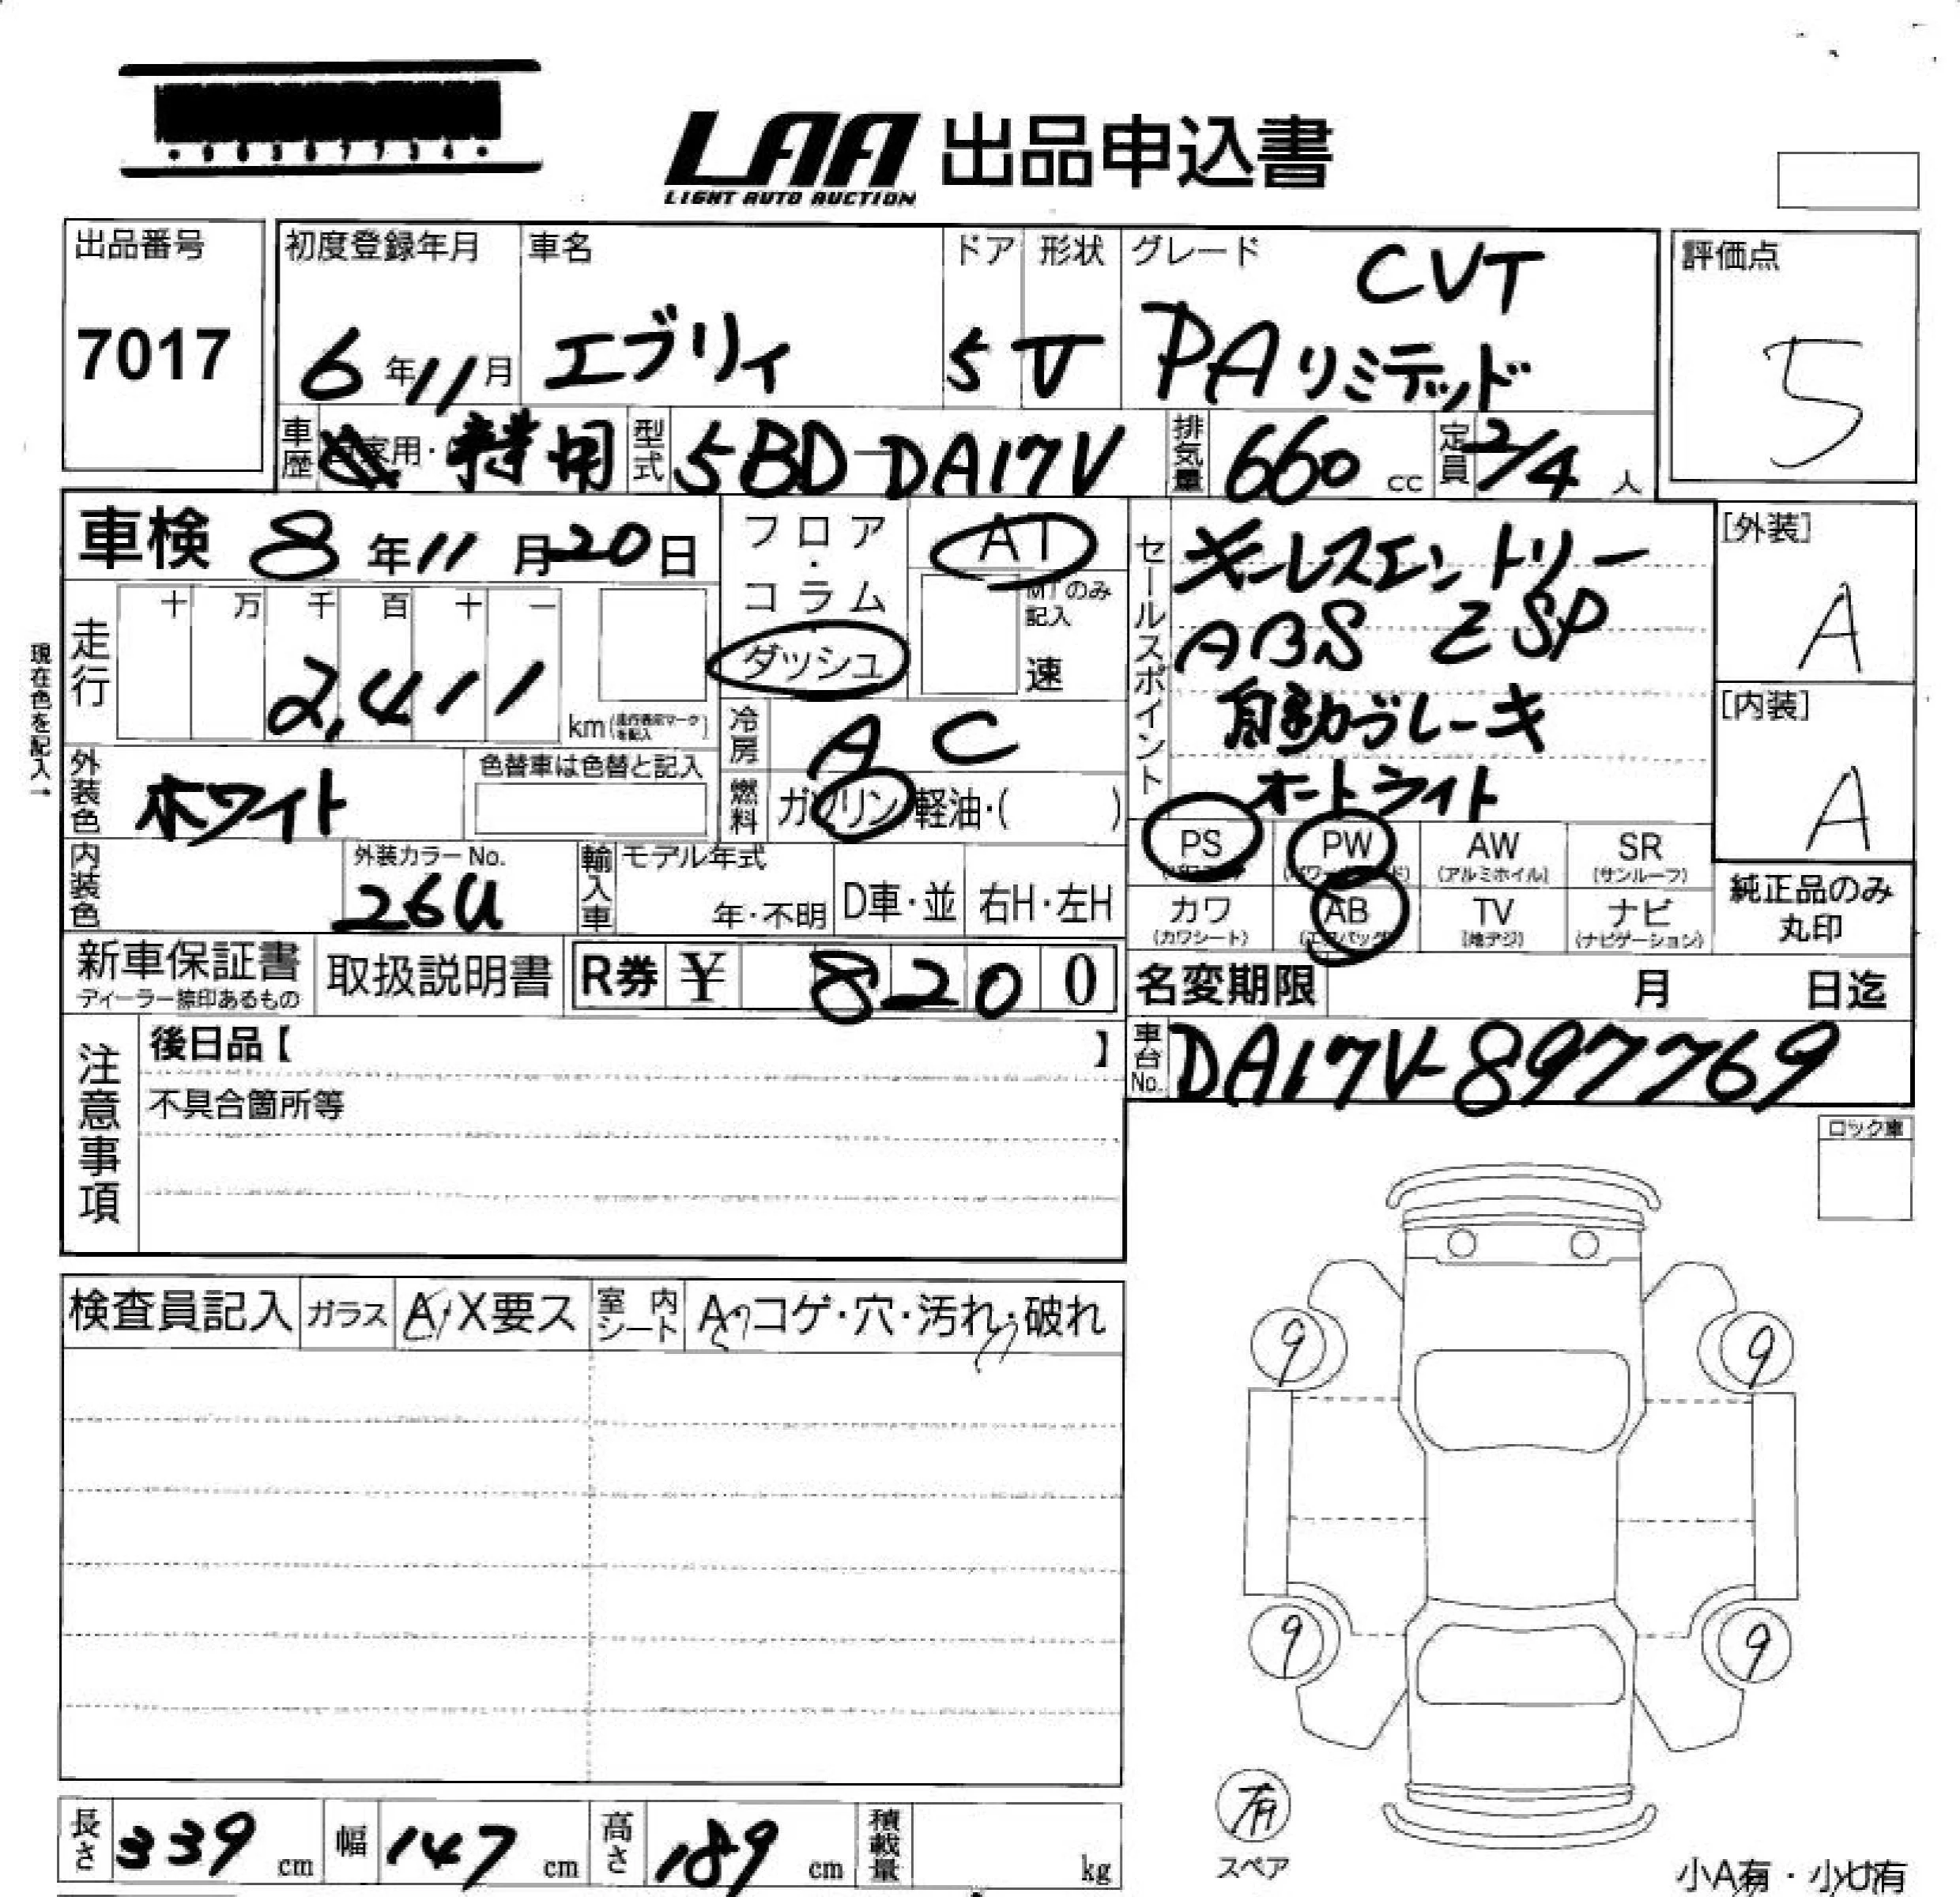 LAA 出品申込書
LIGHT AUTO AUCTION
出品番号
7017
初度登録年月
6年11月
車名
エブリイ
ドア
5
形状
V
グレード
CVT
PAリミテッド
評価点
5
車歴
家用・
型式
5BD-DA17V
排気量
660cc
定員
2/4人
車検 8年11月20日
フロア・コラム
ダッシュ
AT
MTのみ記入
速
セールスポイント
キーレスエントリー
ABS ESP
自動ブレーキ
オートライト
[外装]
A
[内装]
A
現在色を記入→
走行
十 万 千 百 十 一
2,411
km(走行表示マークを記入)
冷房
AC
燃料
ガソリン 軽油・( )
外装色
ホワイト
色替車は色替と記入
内装色
外装カラーNo.
26U
輸入車
モデル年式
年・不明
D車・並
右H・左H
PS
PW
AW
(アルミホイル)
SR
(サンルーフ)
カワ
(カワシート)
AB
(エアバッグ)
TV
(地デジ)
ナビ
(ナビゲーション)
純正品のみ
丸印
新車保証書
ディーラー捺印あるもの
取扱説明書
R券 ¥ 8200
名変期限 月 日迄
車台No.
DA17V-897769
注意事項
後日品【 】
不具合箇所等
ロック車
検査員記入
ガラス
A・X要ス
室内シート
A コゲ・穴・汚れ・破れ
9
9
9
9
有
スペア
長さ 339cm
幅 147cm
高さ 189cm
積載量 kg
小A有・小U有